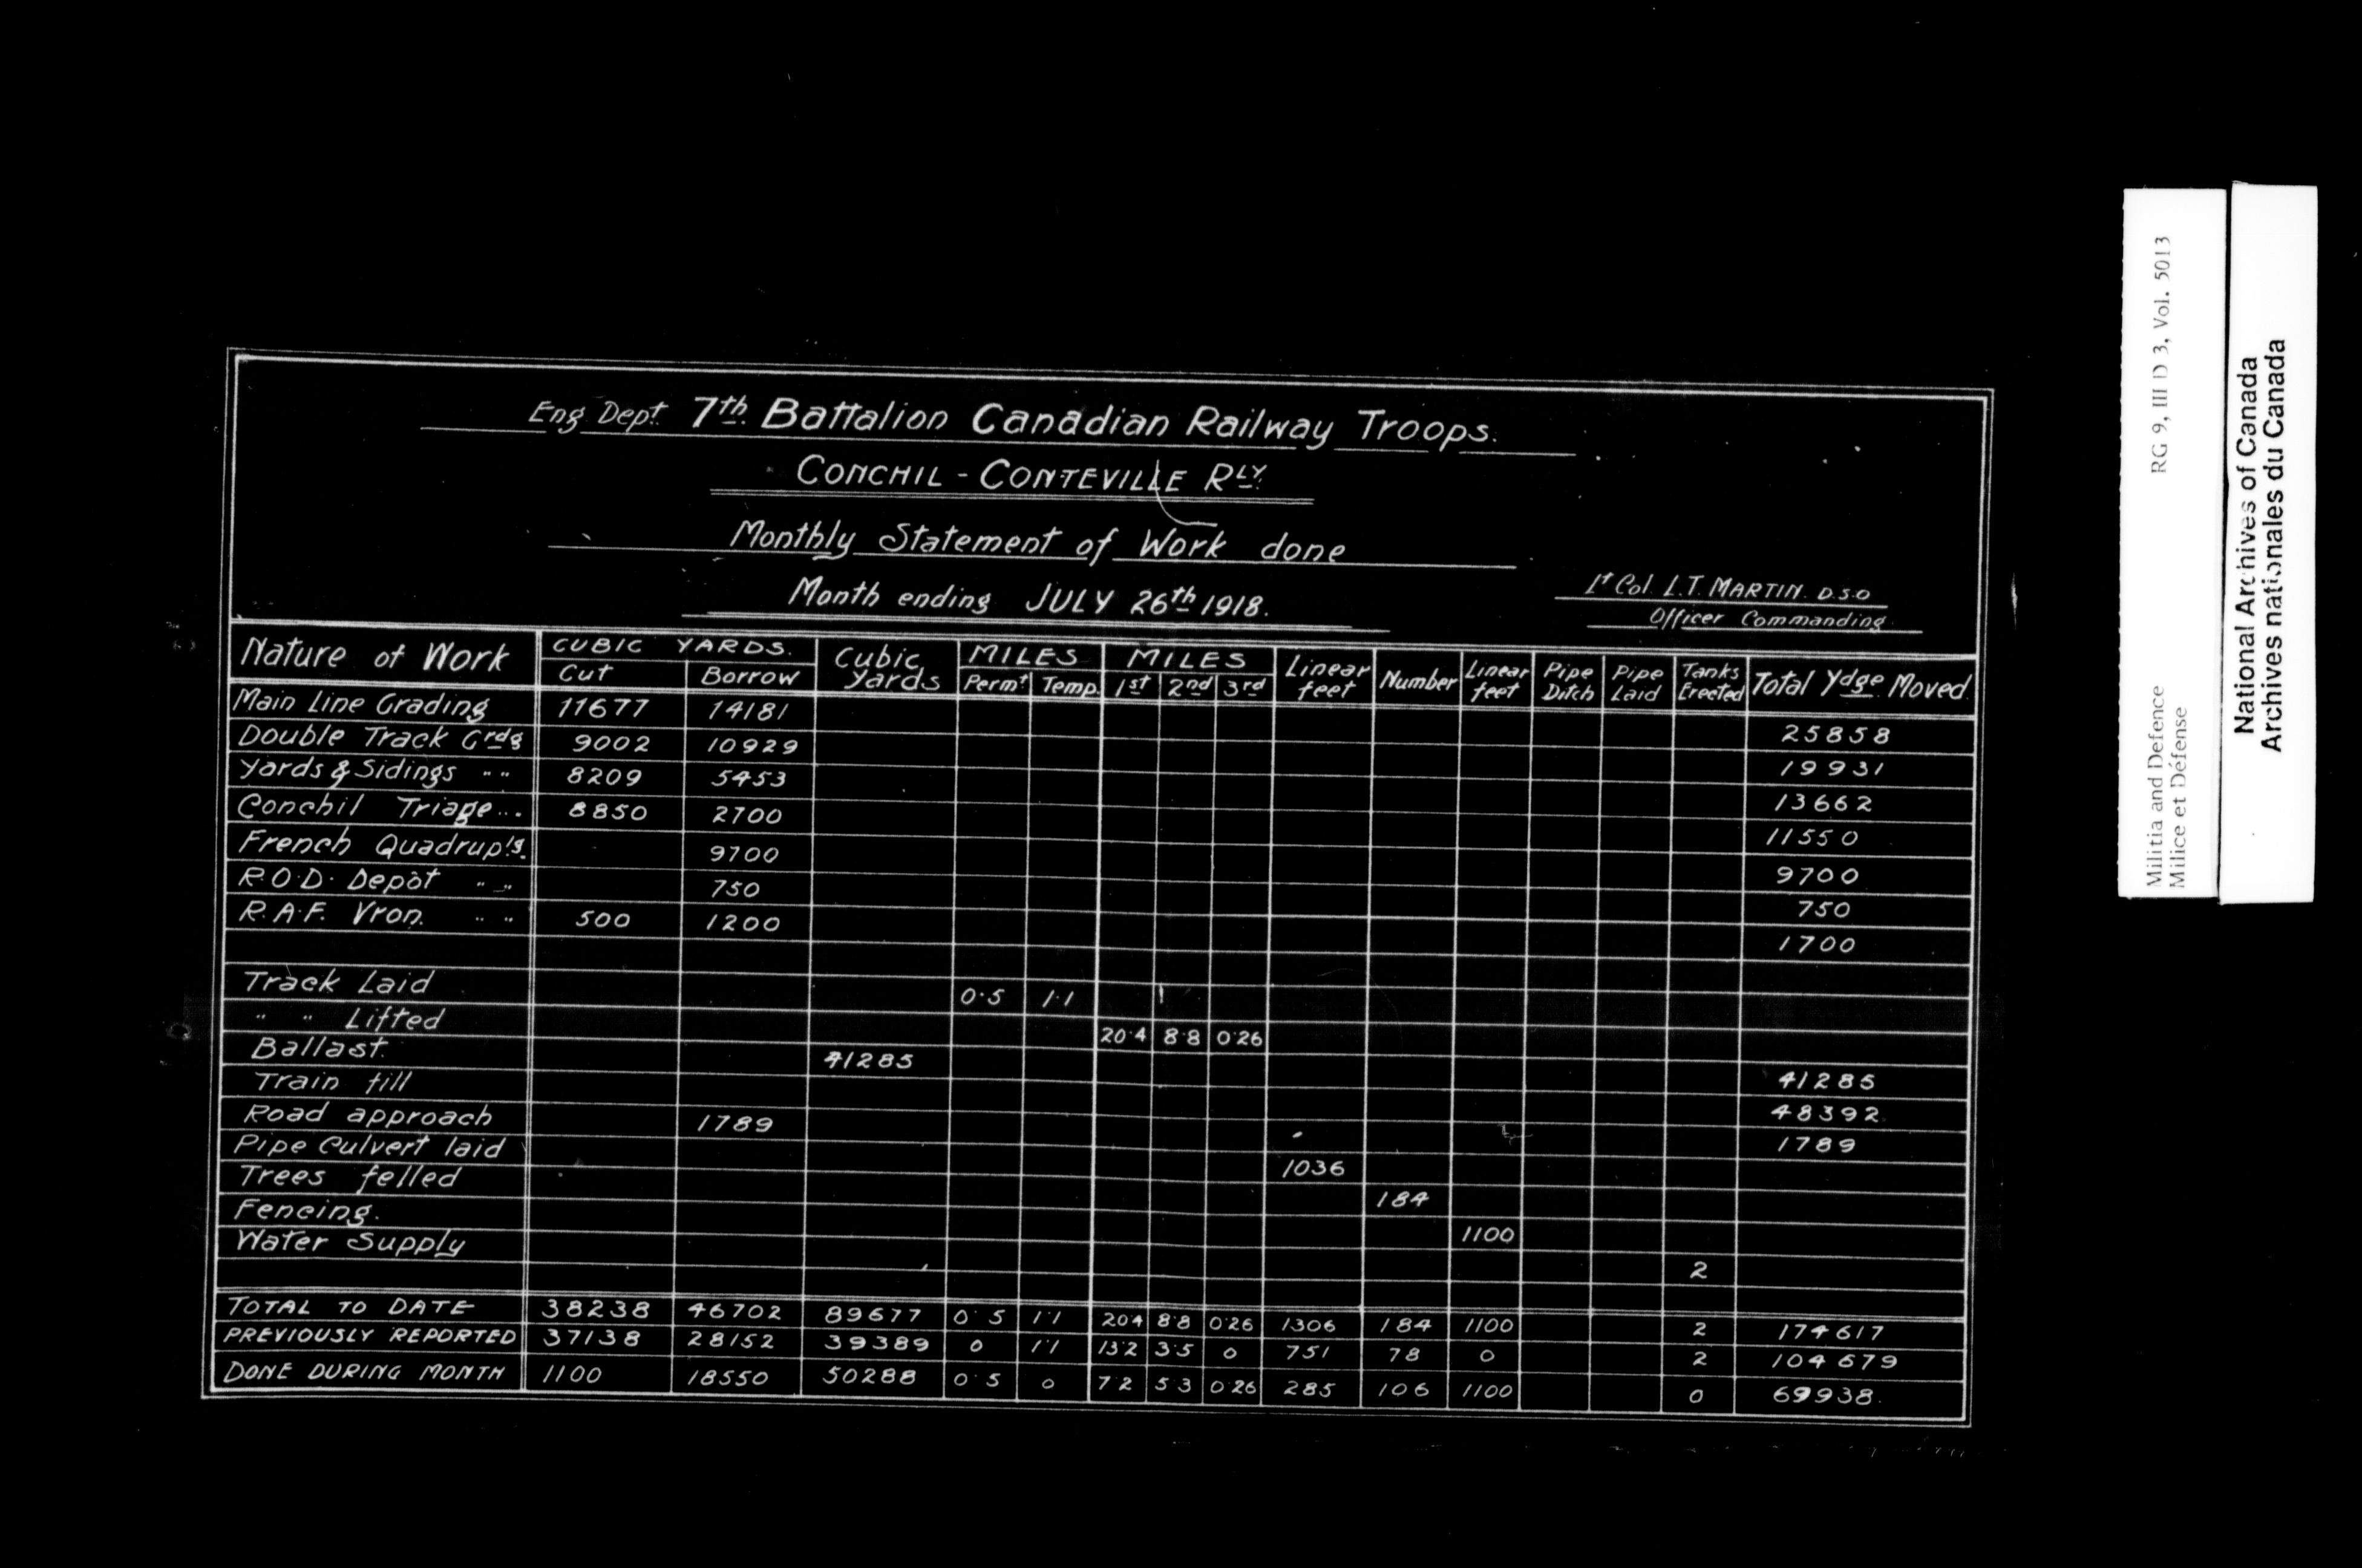 Eng Dept. 7th Battalion Canadian Railway Troops.
CONCHIL - CONTEVILLE RLY.
Monthly Statement of Work done
Month ending JULY 26th 1918.
Lt Col. L.T. MARTIN. D.S.O
Officer Commanding.
Nature of Work CUBIC YARDS. Cubic Yards MILES MILES Linear feet Number Linear feet Pipe Ditch Pipe Laid Tanks Erected Total Ydge Moved.
Cut Borrow Permt Temp. 1st 2nd 3rd
Main Line Grading 11677 14181 25858
Double Track Grdg 9002 10929 19931
Yards & Sidings " " 8209 5453 13662
Conchil Triage " " 8850 2700 11550
French Quadrup'g. 9700 9700
R.O.D. Depôt " " 750 750
R.A.F. Vron. " " 500 1200 1700
Track Laid 0.5 1.1
" " Lifted 20.4 8.8 0.26
Ballast. 41285 41285
Train fill 48392
Road approach 1789 1789
Pipe Culvert laid 1036
Trees felled 184
Fencing. 1100
Water Supply 2
TOTAL TO DATE 38238 46702 89677 0.5 1.1 20.4 8.8 0.26 1306 184 1100 2 174617
PREVIOUSLY REPORTED 37138 28152 39389 0 1.1 13.2 3.5 0 751 78 0 2 104679
DONE DURING MONTH 1100 18550 50288 0.5 0 7.2 5.3 0.26 285 106 1100 0 69938.
Militia and Defence RG 9, III D 3, Vol. 5013
Milice et Défense
National Archives of Canada
Archives nationales du Canada